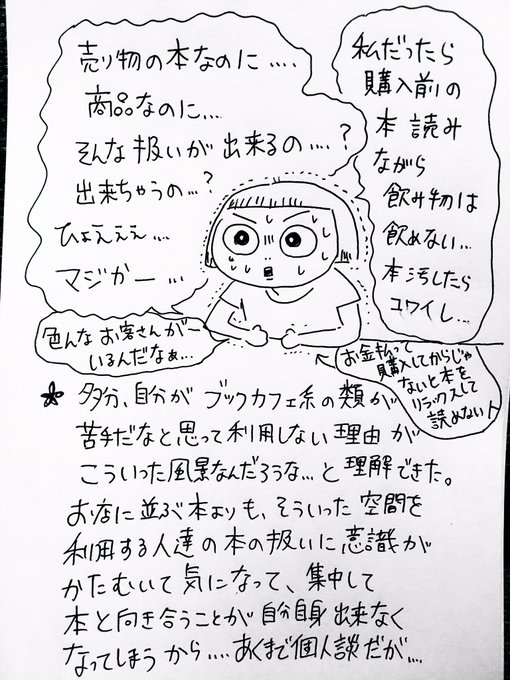 私だったら
購入前の
本 読み
ながら
飲み物は
飲めない…
本汚したら
コワイし…
売り物の本なのに….
商品なのに…
そんな扱いが出来るの….?
出来ちゃうの…?
ひょえええ…
マジかー…
色んなお客さんがー
いるんだなぁ…
お金払って
購入してからじゃ
ないと本を
リラックスして
読めない人
* 多分、自分が ブックカフェ系の類が
苦手だなと思って利用しない理由が
こういった風景なんだろうな…と理解できた。
お店に並ぶ本よりも、そういった空間を
利用する人達の本の扱いに意識が
かたむいて気になって、集中して
本と向き合うことが自分自身出来なく
なってしまうから….あくまで個人談だが…